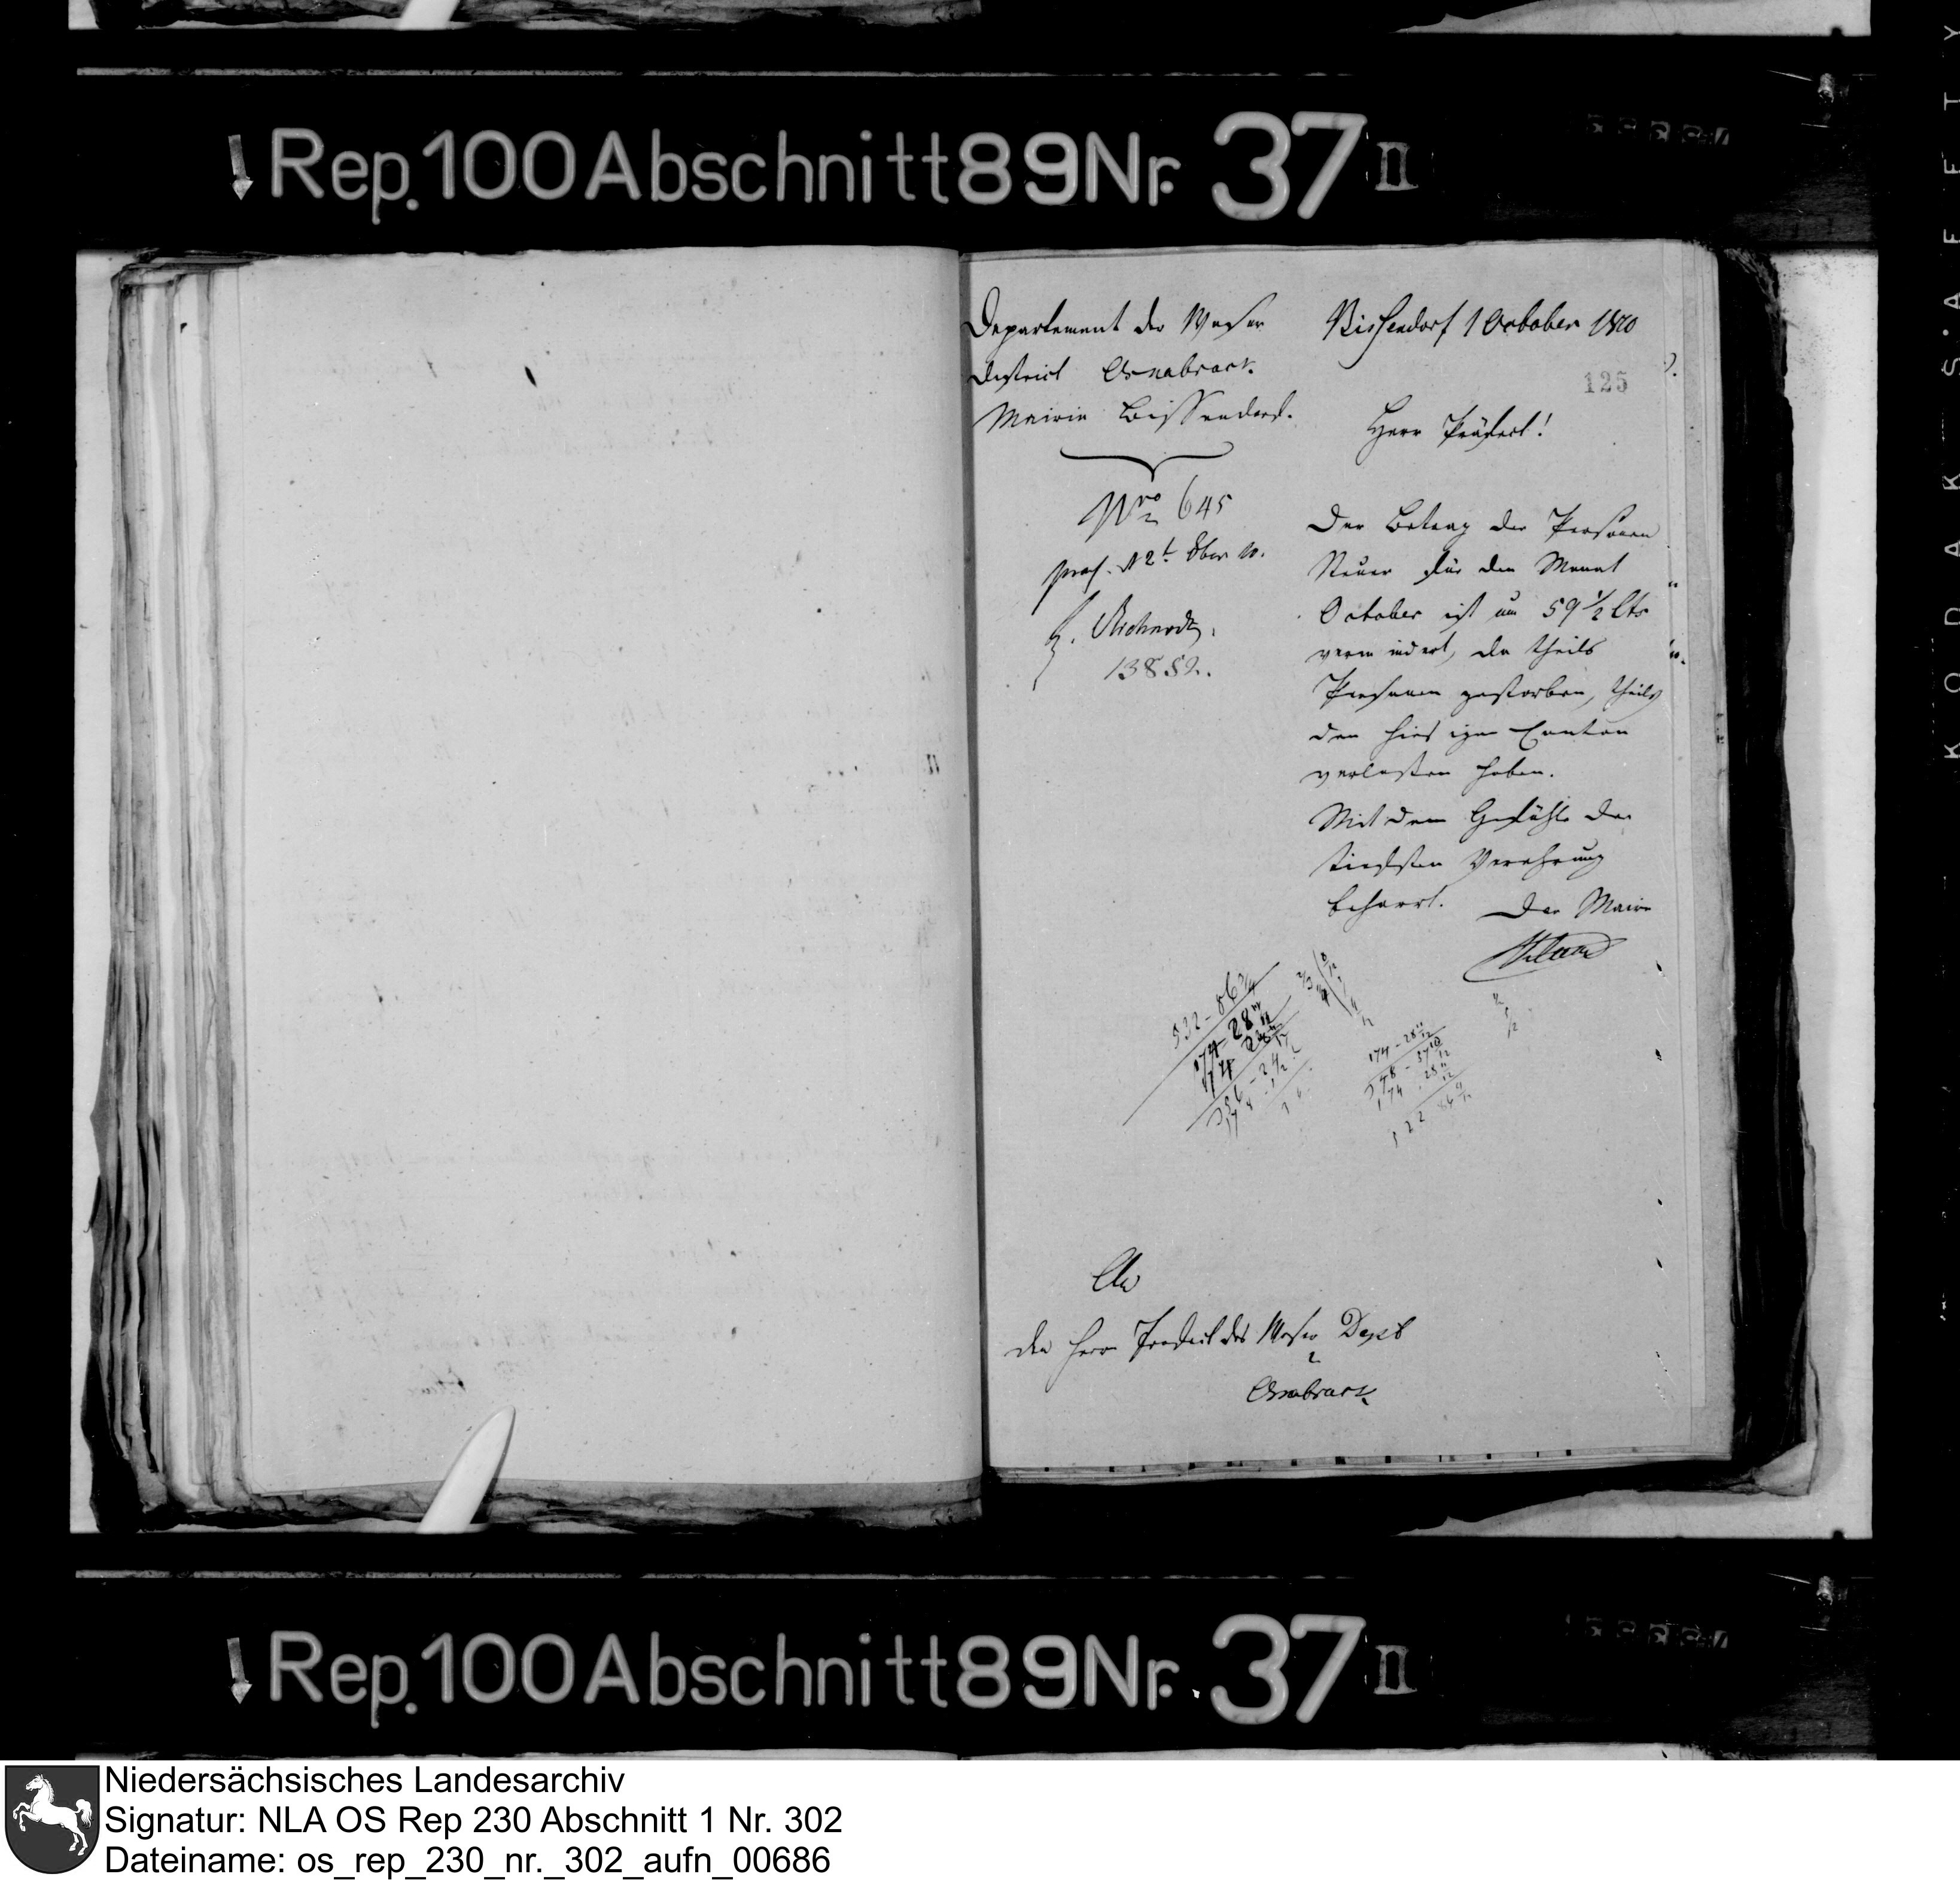 Rep. 100 Abschnitt 89 Nr. 37 II
Departement der Weser
District Osnabrück.
Mairie Bissendorf.
Nro 645
praes. d 2t 8ber 10.
13852.
Bissendorf 1 October 1810
125
Herr Präfect!
Der Betrag der Personen
Steuer für den Monat
October ist um 59 1/2 Cts
vermindert, da theils
Personen gestorben, theils
den hiesigen Canton
verlassen haben.
Mit dem Gefühle der
tiefsten Verehrung
beharrt. Der Maire
174 - 28 11/12
An
den Herrn Praefect des Weser Dept
Osnabrück
Rep. 100 Abschnitt 89 Nr. 37 II
Niedersächsisches Landesarchiv
Signatur: NLA OS Rep 230 Abschnitt 1 Nr. 302
Dateiname: os_rep_230_nr._302_aufn_00686